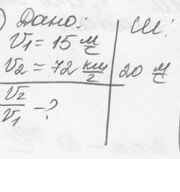 ) Дано:
V₁ = 15 м/с
V₂ = 72 км/г
V₂/V₁ - ?
Ш:
20 м/с